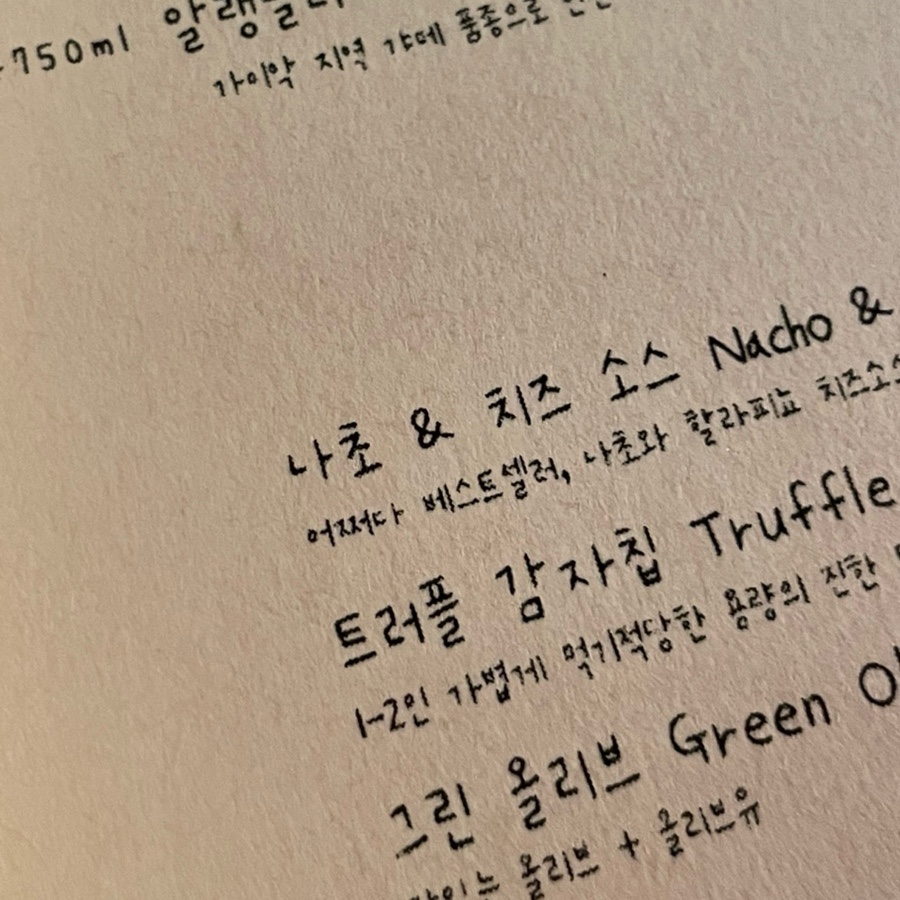 750ml 알랭
가이약 지역 갸메 품종으로
나초 & 치즈 소스 Nacho &
어쩌다 베스트셀러, 나초와 할라피뇨 치즈소스
트러플 감자칩 Truffle
1-2인 가볍게 먹기적당한 용량의 진한
그린 올리브 Green
올리브 + 올리브유